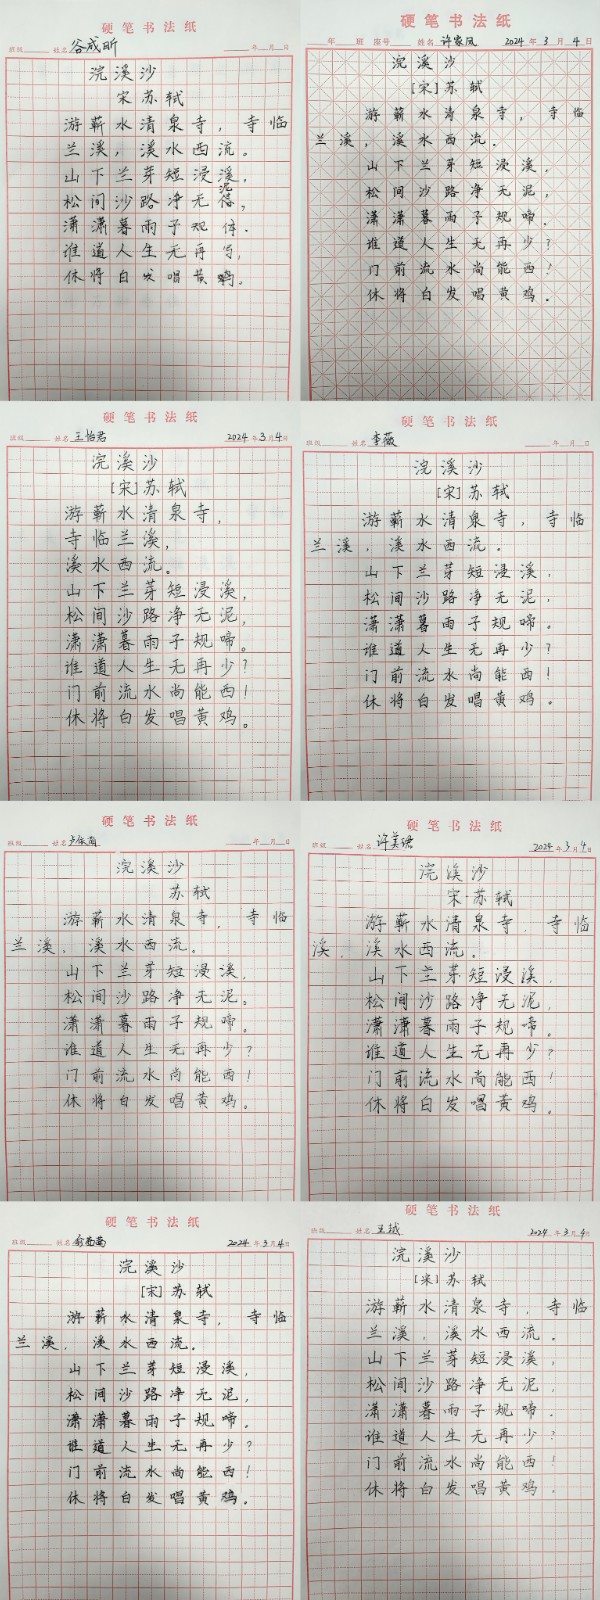 硬笔书法纸
班级 姓名 谷成昕 年 月 日
浣溪沙
宋苏轼
游蕲水清泉寺，寺临
兰溪，溪水西流。
山下兰芽短浸溪，
松间沙路净无泥，
潇潇暮雨子规
谁道人生无再
休将白发唱黄鸡。
硬笔书法纸
年 班 座号 姓名 许家凤 2024年3月4日
浣溪沙
[宋]苏轼
游蕲水清泉寺，寺临
兰溪，溪水西流。
山下兰芽短浸溪，
松间沙路净无泥，
潇潇暮雨子规啼。
谁道人生无再少？
门前流水尚能西！
休将白发唱黄鸡。
硬笔书法纸
班级 姓名 王怡君 2024年3月4日
浣溪沙
[宋]苏轼
游蕲水清泉寺，
寺临兰溪，
溪水西流。
山下兰芽短浸溪，
松间沙路净无泥，
潇潇暮雨子规啼。
谁道人生无再少？
门前流水尚能西！
休将白发唱黄鸡。
硬笔书法纸
班级 姓名 李薇 年 月 日
浣溪沙
[宋]苏轼
游蕲水清泉寺，寺临
兰溪，溪水西流。
山下兰芽短浸溪，
松间沙路净无泥，
潇潇暮雨子规啼。
谁道人生无再少？
门前流水尚能西！
休将白发唱黄鸡。
硬笔书法纸
班级 姓名 年 月 日
浣溪沙
苏轼
游蕲水清泉寺，寺临
兰溪，溪水西流。
山下兰芽短浸溪，
松间沙路净无泥。
潇潇暮雨子规啼。
谁道人生无再少？
门前流水尚能西！
休将白发唱黄鸡。
硬笔书法纸
班级 姓名 许美珺 2024年3月4日
浣溪沙
宋·苏轼
游蕲水清泉寺，寺临
溪，溪水西流。
山下兰芽短浸溪，
松间沙路净无泥，
潇潇暮雨子规啼。
谁道人生无再少？
门前流水尚能西！
休将白发唱黄鸡。
硬笔书法纸
班级 姓名 2024年3月4日
浣溪沙
[宋]苏轼
游蕲水清泉寺，寺临
兰溪，溪水西流。
山下兰芽短浸溪，
松间沙路净无泥，
潇潇暮雨子规啼。
谁道人生无再少？
门前流水尚能西！
休将白发唱黄鸡。
硬笔书法纸
班级 姓名 王越 2024年3月4日
浣溪沙
[宋]苏轼
游蕲水清泉寺，寺临
兰溪，溪水西流。
山下兰芽短浸溪，
松间沙路净无泥，
潇潇暮雨子规啼。
谁道人生无再少？
门前流水尚能西！
休将白发唱黄鸡。